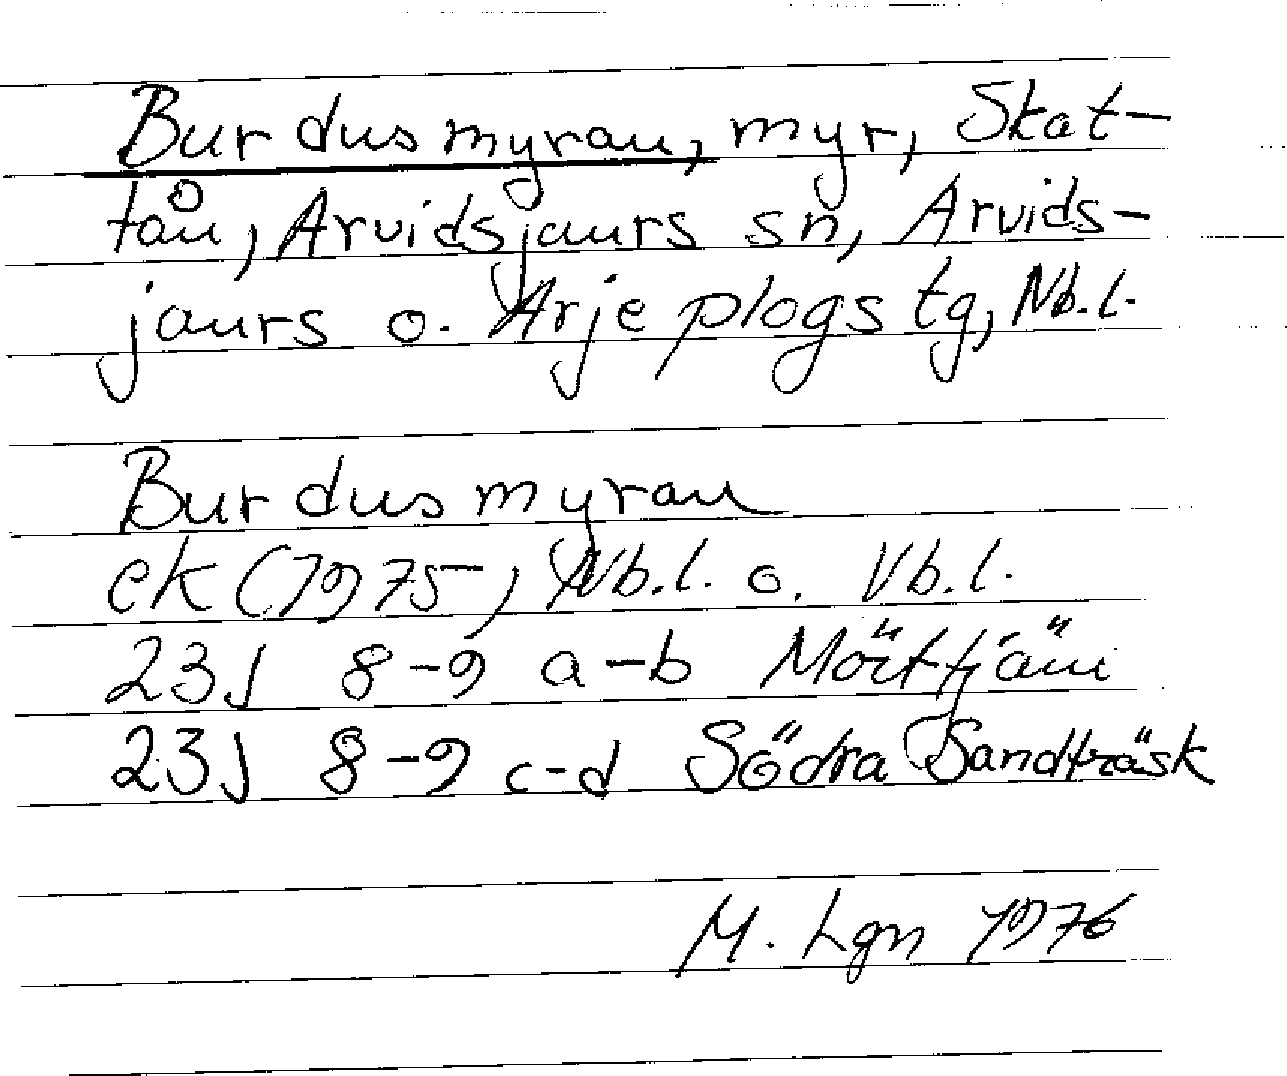 Burdusmyran, myr, Skat-
tån, Arvidsjaurs sn, Arvids-
jaurs o. Arjeplogs tg, Nb.l.
Burdusmyran
ek (1975), Nb.l. o. Vb.l.
23J 8-9 a-b Mörttjärn
23J 8-9 c-d Södra Sandträsk
M. Lgn 1976